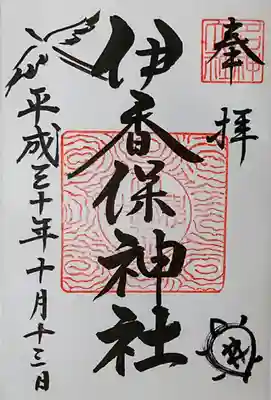 奉拝
伊香保神社
平成三十年十月十三日